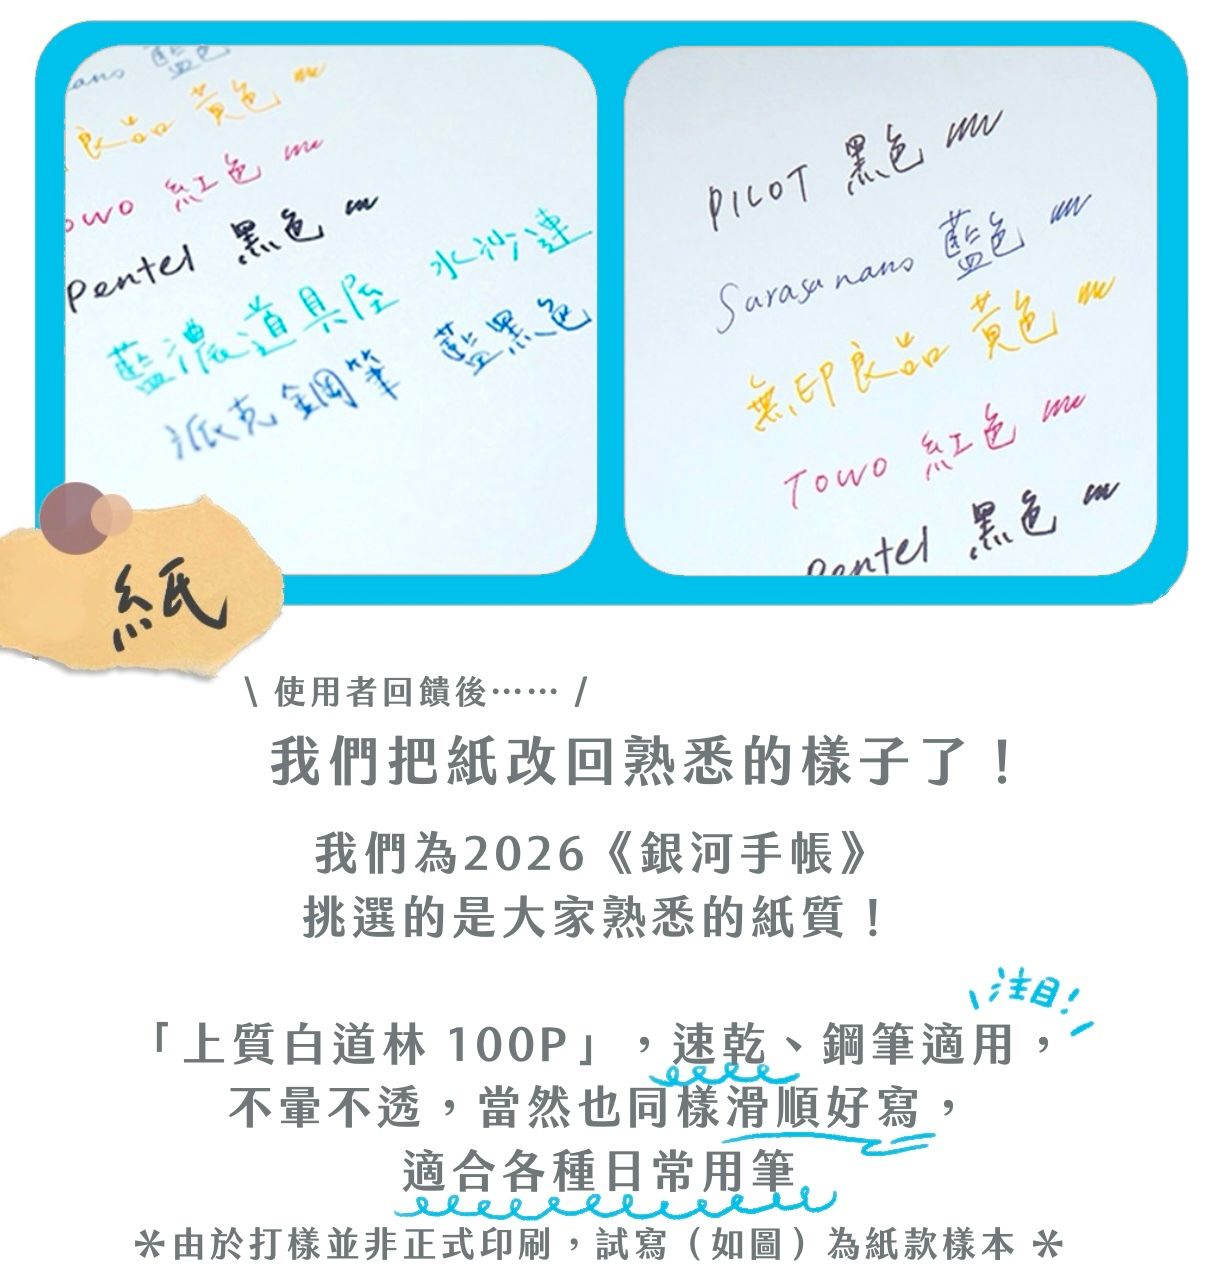 ans 藍色
良品 黃色
owo 紅色
Pentel 黑色
藍濃道具屋 水沙連
派克鋼筆 藍黑色
PILOT 黑色
Sarasa nano 藍色
無印良品 黃色
TOWO 紅色
Pentel 黑色
紙
\ 使用者回饋後…… /
我們把紙改回熟悉的樣子了！
我們為2026《銀河手帳》
挑選的是大家熟悉的紙質！
注目!
「上質白道林 100P」，速乾、鋼筆適用，
不暈不透，當然也同樣滑順好寫，
適合各種日常用筆
＊由於打樣並非正式印刷，試寫（如圖）為紙款樣本 ＊